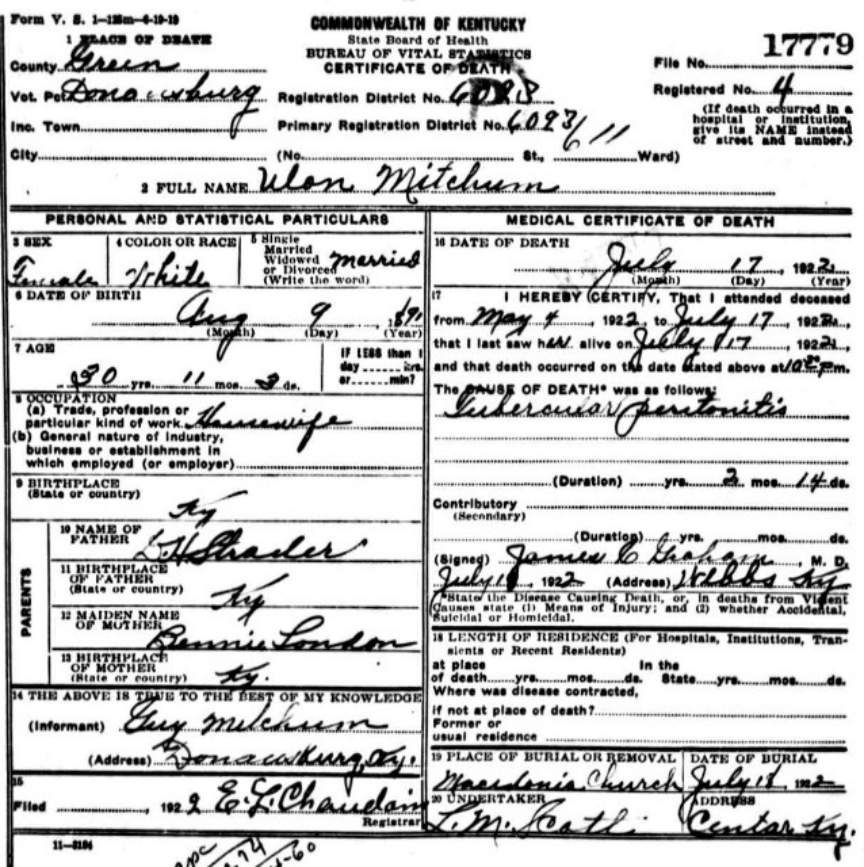 Form V. S. 1—125m—4-19-19
COMMONWEALTH OF KENTUCKY
State Board of Health
BUREAU OF VITAL STATISTICS
CERTIFICATE OF DEATH
17779
File No.
Registered No. 4
(If death occurred in a hospital or institution, give its NAME instead of street and number.)
1 PLACE OF DEATH
County Green
Vot. Pct. Donansburg
Registration District No.
Inc. Town
Primary Registration District No. 6093/611
City (No. St., Ward)
2 FULL NAME Ulon Mitchum
PERSONAL AND STATISTICAL PARTICULARS
3 SEX Female
4 COLOR OR RACE White
5 Single Married Widowed or Divorced (Write the word) Married
6 DATE OF BIRTH
Aug 9, 1891
(Month) (Day) (Year)
7 AGE
30 yrs. 11 mos. ds.
IF LESS than 1 day hrs. or min?
8 OCCUPATION
(a) Trade, profession or particular kind of work Housewife
(b) General nature of industry, business or establishment in which employed (or employer)
9 BIRTHPLACE
(State or country)
Ky
PARENTS
10 NAME OF FATHER
Strader
11 BIRTHPLACE OF FATHER
(State or country)
Ky
12 MAIDEN NAME OF MOTHER
Bennie London
13 BIRTHPLACE OF MOTHER
(State or country)
Ky.
14 THE ABOVE IS TRUE TO THE BEST OF MY KNOWLEDGE
(Informant) Guy Mitchum
(Address) Donansburg, Ky.
15
Filed , 1922 E. L. Chaudoin
Registrar
11—3184
MEDICAL CERTIFICATE OF DEATH
16 DATE OF DEATH
July 17, 1922
(Month) (Day) (Year)
17 I HEREBY CERTIFY, That I attended deceased
from May 4, 1922, to July 17, 1922,
that I last saw her alive on July 17, 1922,
and that death occurred on the date stated above at m.
The CAUSE OF DEATH* was as follows:
Tubercular peritonitis
(Duration) yrs. 2 mos. 14 ds.
Contributory
(Secondary)
(Duration) yrs. mos. ds.
(Signed) James C Graham, M. D.
July 18, 1922 (Address) Webbs Ky
*State the Disease Causing Death, or, in deaths from Violent Causes state (1) Means of Injury; and (2) whether Accidental, Suicidal or Homicidal.
18 LENGTH OF RESIDENCE (For Hospitals, Institutions, Transients or Recent Residents)
at place of death yrs. mos. ds. In the State yrs. mos. ds.
Where was disease contracted,
if not at place of death?
Former or usual residence
19 PLACE OF BURIAL OR REMOVAL
Macedonia Church
DATE OF BURIAL
July 18 1922
20 UNDERTAKER
L. M.
ADDRESS
Center Ky.